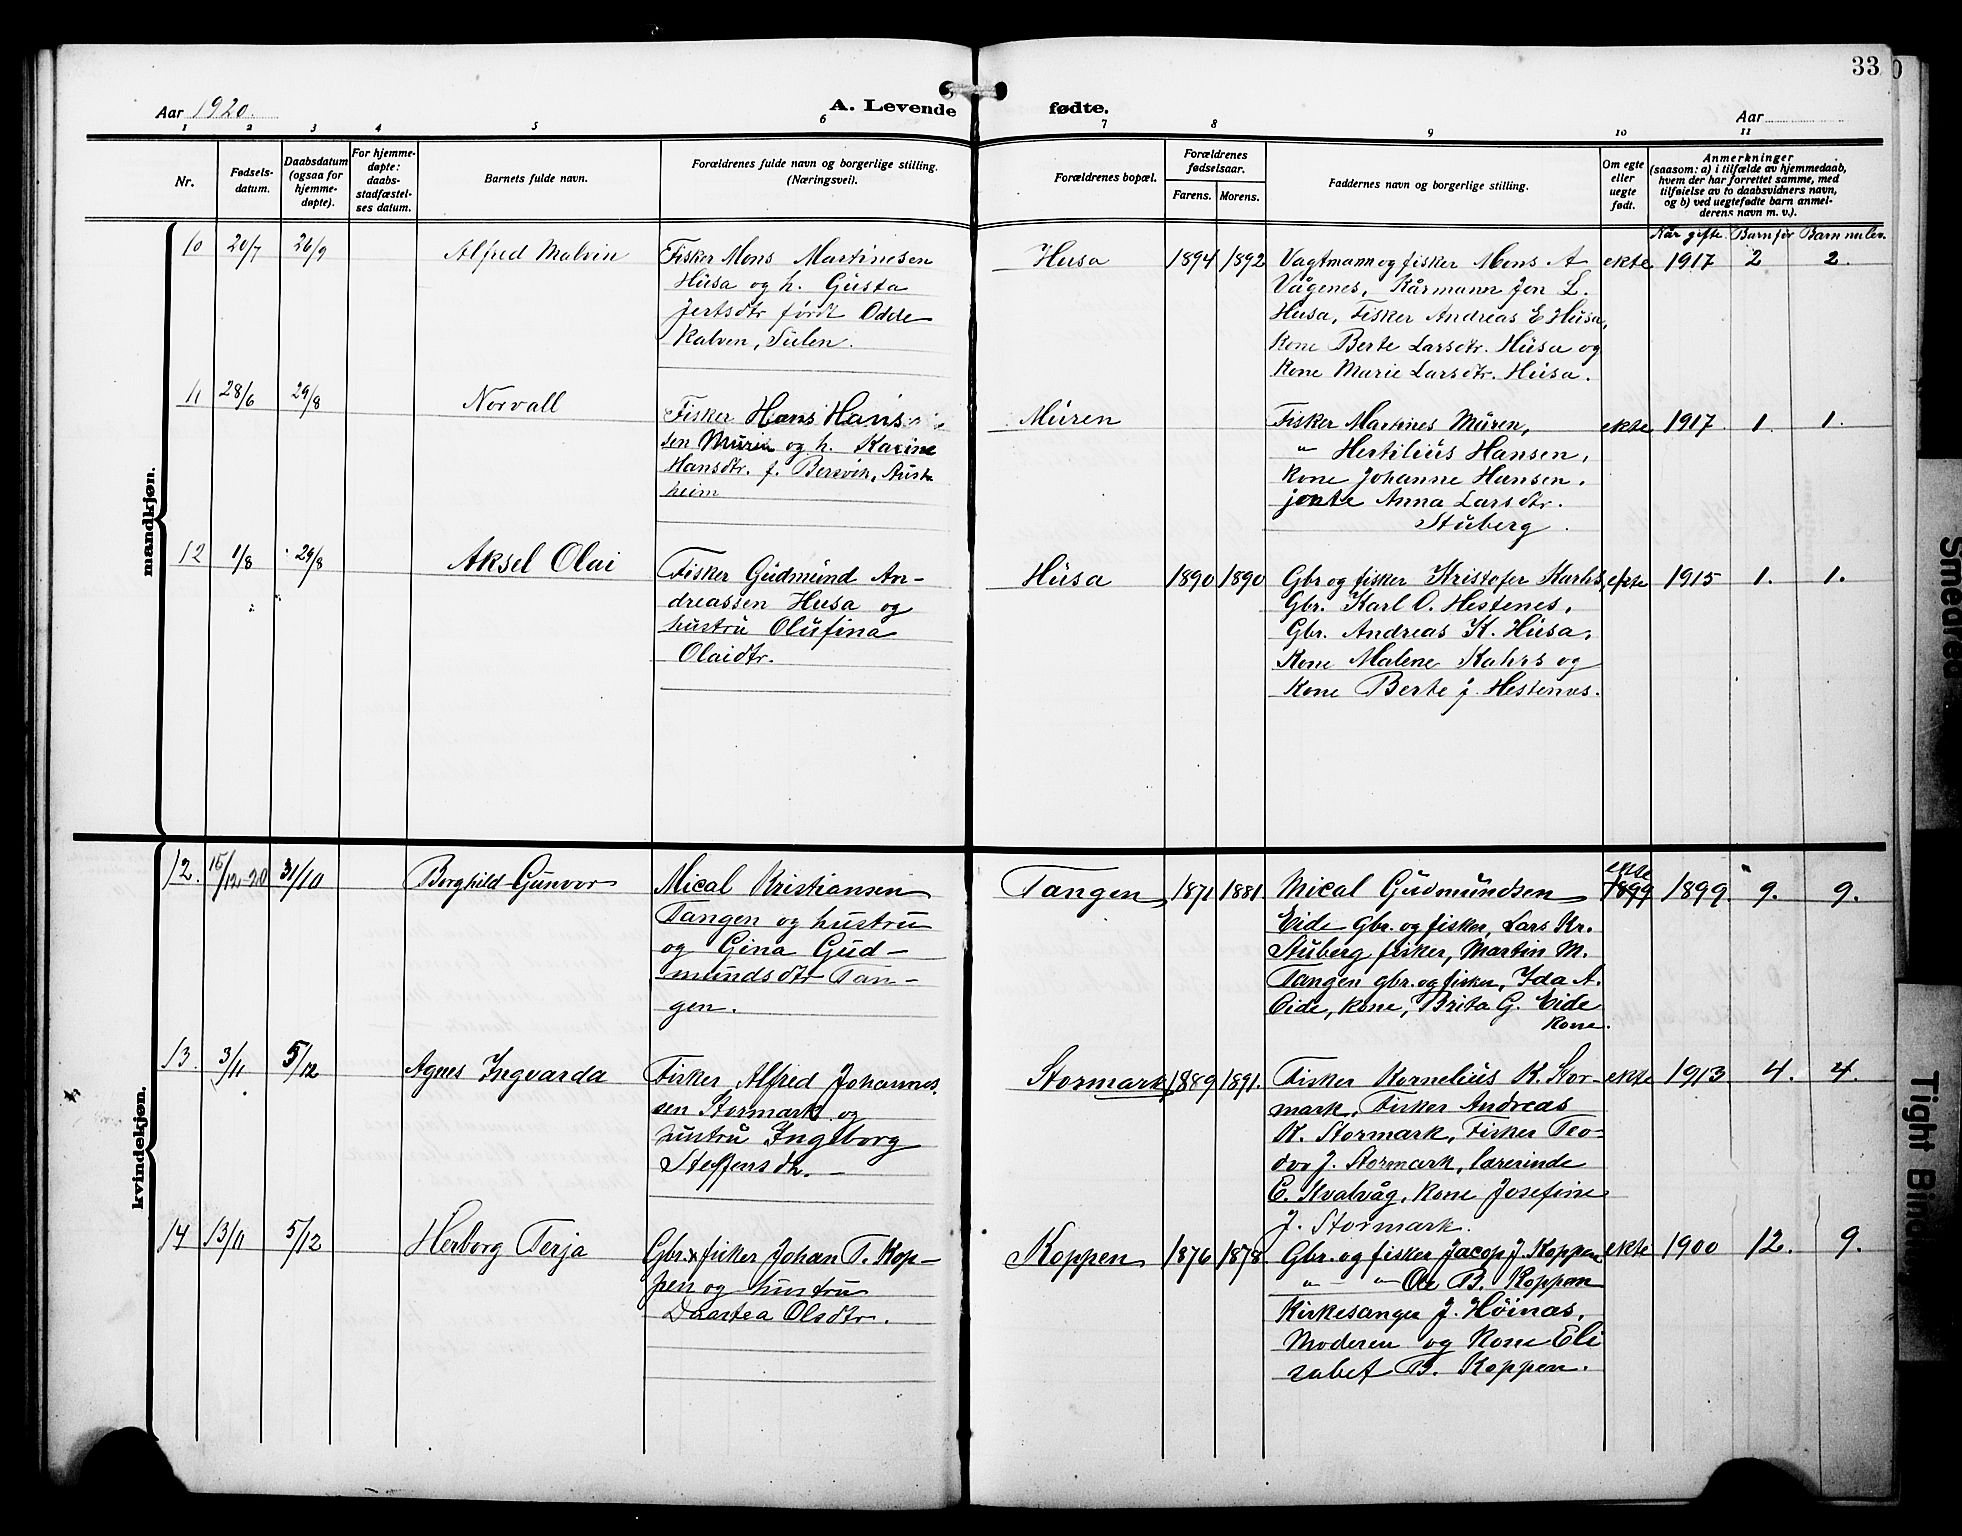 33
Aar 1920.
A. Levende fødte.
Aar
1 2 3 4 5 6 7 8 9 10 11
Nr.
Fødsels-
datum.
Daabsdatum
(ogsaa for
hjemme-
døpte).
For hjemme-
døpte:
daabs-
stadfæstel-
ses datum.
Barnets fulde navn.
Forældrenes fulde navn og borgerlige stilling.
(Næringsvei).
Forældrenes bopæl.
Forældrenes
fødselsaar.
Farens. Morens.
Faddernes navn og borgerlige stilling.
Om egte
eller
uegte
født.
Anmerkninger
(saasom: a) i tilfælde av hjemmedaab,
hvem der har forrettet samme, med
tilføielse av to daabsvidners navn,
og b) ved uegtefødte barn anmel-
derens navn m. v.).
Når gifte. Barn før Barn nulev.
mandkjøn.
10 20/7 26/9 Alfred Malvin
Fisker Mons Martinesen
Husa og h. Gusta
Jertsdtr født Odde
Kalven, Sulen.
Husa 1894 1892
Vagtmann og fisker Mons A
Vågenes, Kårmann Jon L.
Husa, Fisker Andreas E Husa,
Kone Berte Larsdtr. Husa og
Kone Marie Larsdtr. Husa.
ekte 1917 2 2.
11 28/6 29/8 Norvall
Fisker Hans Hans-
sen Muren og h. Karine
Hansdtr. f. Bersvik, Aust-
heim
Muren
Fisker Martines Muren,
" Hertilius Hansen,
Kone Johanne Hansen.
jente Anna Larsdtr.
Stuberg.
ekte 1917. 1. 1.
12 1/8 29/8 Aksel Olai
Fisker Gudmund An-
dreassen Husa og
hustru Olufina
Olaidtr.
Husa 1890 1890
Gbr og fisker Kristofer Kahrs,
Gbr. Karl O. Hestenes,
Gbr. Andreas K. Husa,
Kone Malene Kahrs og
Kone Berte J. Hestenes.
ekte 1915 1. 1.
kvindekjøn.
12. 15/12-20 31/10 Borghild Gunvor
Mical Kristiansen
Tangen og hustru
og Gina Gud-
mundsdtr Tan-
gen.
Tangen 1871 1881.
Mical Gudmundsen
Eide Gbr. og fisker, Lars Kr.
Stuberg fisker, Martin M.
Tangen gbr. og fisker, Ida A.
Eide, kone, Brita G. Eide
kone.
ekte
1899 1899. 9. 9.
13. 3/11 5/12 Agnes Ingvarda
Fisker Alfred Johannes-
sen Stormark og
hustru Ingeborg
Steffensdtr.
Stormark 1889 1891.
Fisker Kornelius K. Stor-
mark, Fisker Andreas
K. Stormark, Fisker Teo-
dor J. Stormark, lærerinde
C. Kvalvåg, Kone Josefine
J. Stormark.
ekte 1913 4. 4.
14 13/11 5/12 Herborg Terja
Gbr. & fisker Johan T. Kop-
pen og hustru
Daartea Olsdtr.
Koppen 1876 1878.
Gbr. og fisker Jacop J. Koppen
" - " Ole B. Koppen
Kirkesanger J. Høinæs,
Moderen og Kone Eli
sabet B. Koppen.
ekte 1900 12. 9.
Smeared
Tight Bind